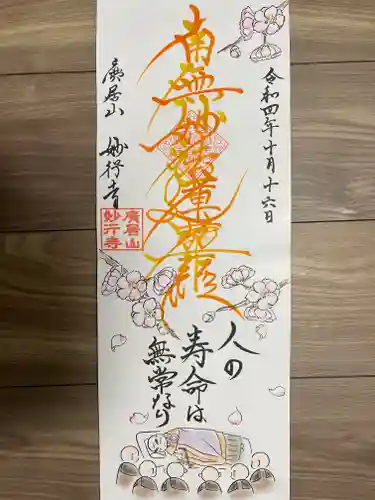 令和四年十月十六日
南無妙法蓮華経
廣居山 妙行寺
廣居山
妙行寺
人の
寿命は
無常なり